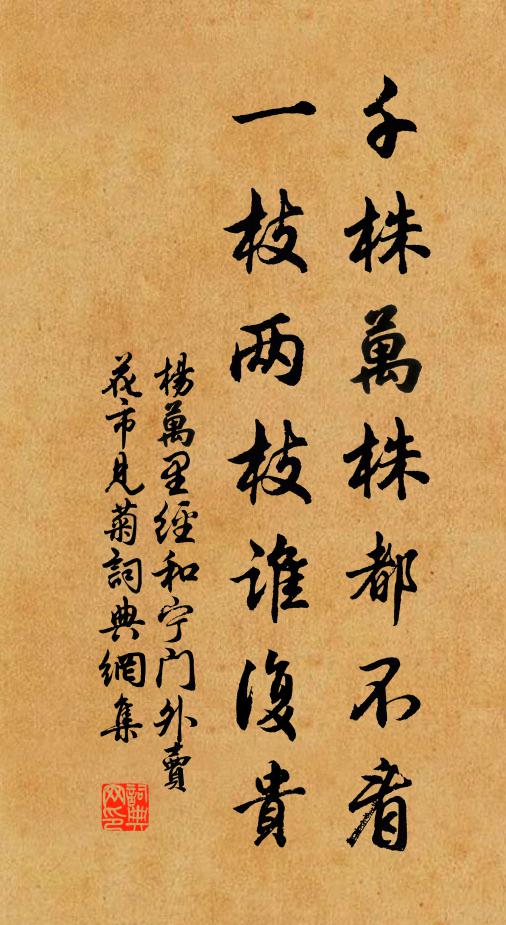 千株萬株都不看
一枝两枝誰復貴
楊萬里經和宁门外賣
花市見菊詞典網集
詞典網印